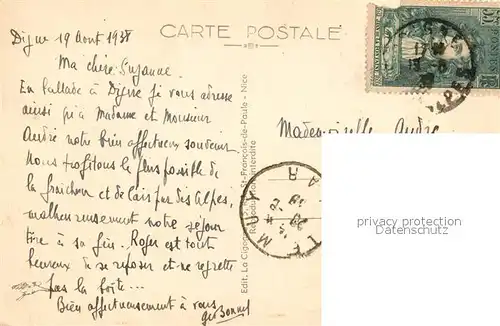 CARTE POSTALE
Digne 19 Aout 1938
Ma chère Suzanne.
En ballade à Digne je vous adresse
ainsi qu'à Madame et Monsieur
André notre bien affectueux souvenir
Nous profitons le plus possible de
la fraîcheur et de l'air pur des Alpes,
malheureusement notre séjour
tire à sa fin. Roger est tout
heureux de se reposer et ne regrette
pas la boîte...
Bien affectueusement à vous
Bonnet
Edit. La Cigogne
St-François-de-Paule - Nice
Reproduction interdite
Mademoiselle André
LE MUY
VAR
privacy protection
Datenschutz